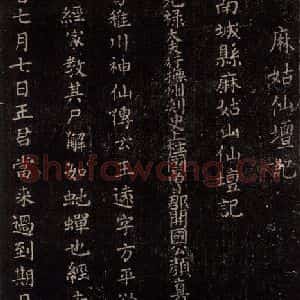 麻姑仙壇記
南城縣麻姑山仙壇記
祿大夫行撫州刺史上柱國魯郡開國公顏真
稚川神仙傳云王遠字方平欲
經家教其尸解如蛇蟬也經去
七月七日王君當來過到期日
Shufawang.Cn